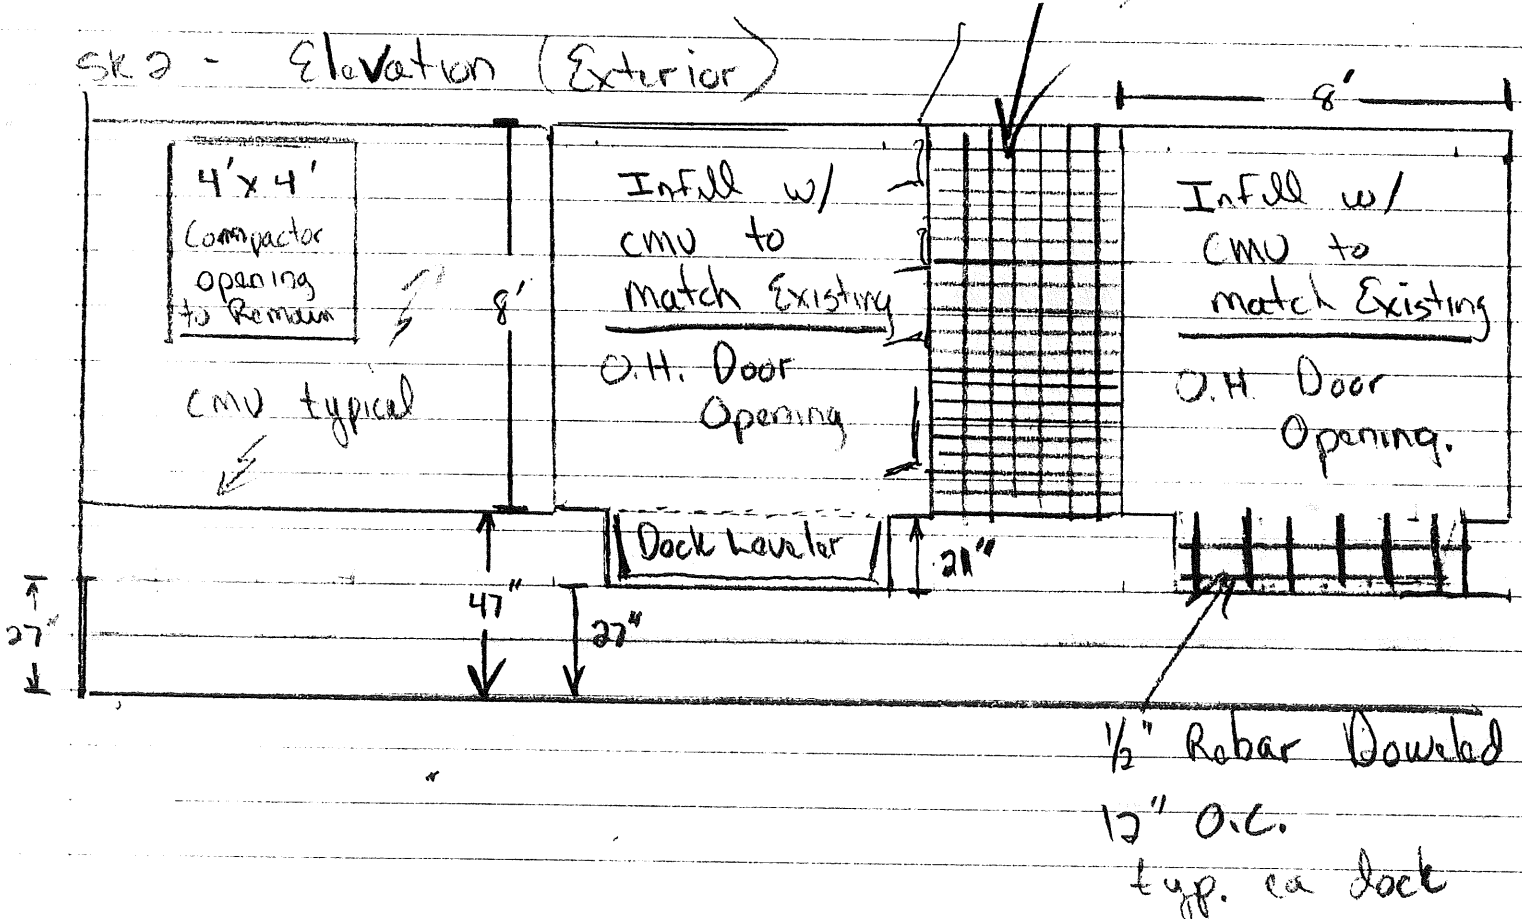 SK2 - Elevation (Exterior)
8'
4'x4'
Commpactor
opening
to Remain
CMU typical
8'
Infill w/
CMU to
Match Existing
O.H. Door
Opening
Infill w/
CMU to
match Existing
O.H. Door
Opening.
Dock Leveler
21"
47"
27"
27"
1/2" Rebar Doweled
12" O.C.
typ. ea dock